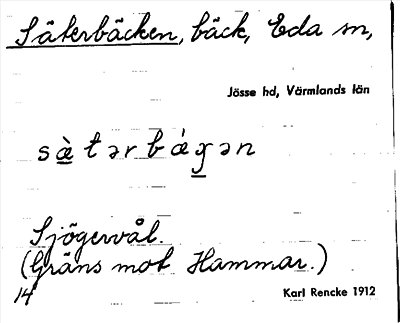 Säterbäcken, bäck, Eda sn,
Jösse hd, Värmlands län
sæ̀tərbǽɡən
Sjögervål.
(Gräns mot Hammar.)
14
Karl Rencke 1912